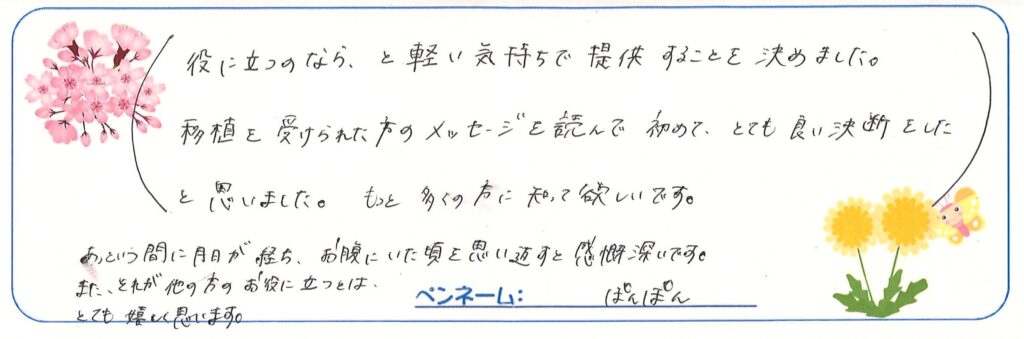 役に立つのなら、と軽い気持ちで提供することを決めました。
移植を受けられた方のメッセージを読んで初めて、とても良い決断をした
と思いました。もっと多くの方に知って欲しいです。
あっという間に月日が経ち、お腹にいた頃を思い返すと感慨深いです。
また、それが他の方のお役に立つとは、
とても嬉しく思います。
ペンネーム: ぽんぽん